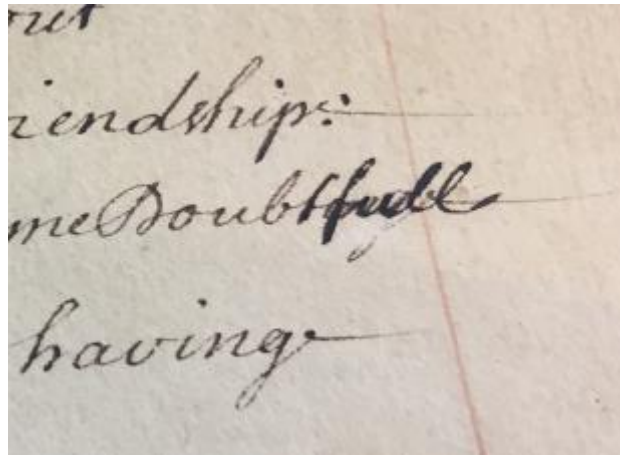 out
iendship:
me Doubtfull
having